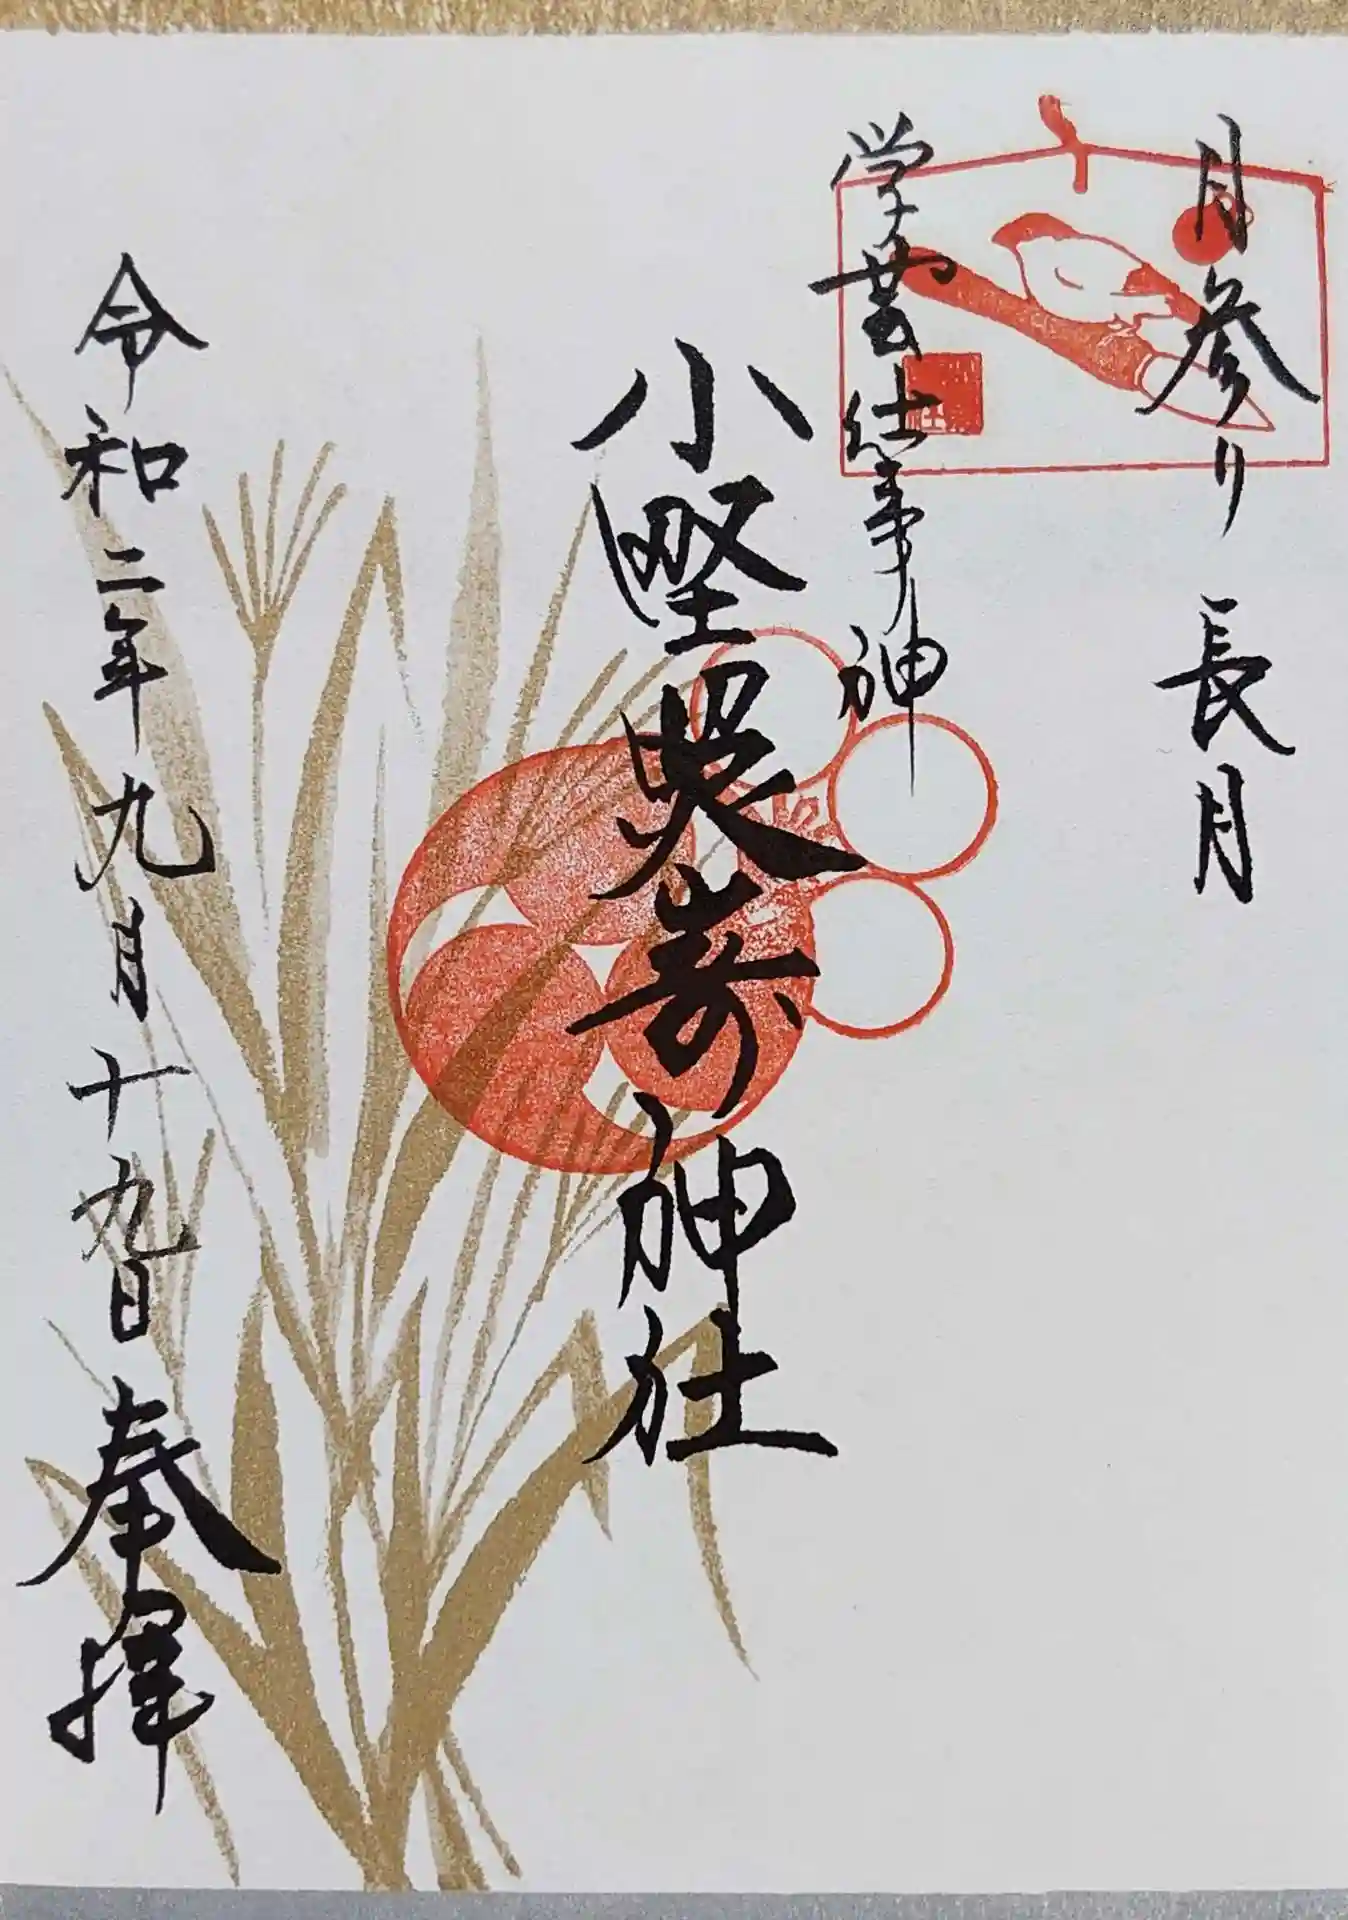 月参り 長月
学芸仕事神
小野照嵜神社
令和二年九月十九日 奉拝